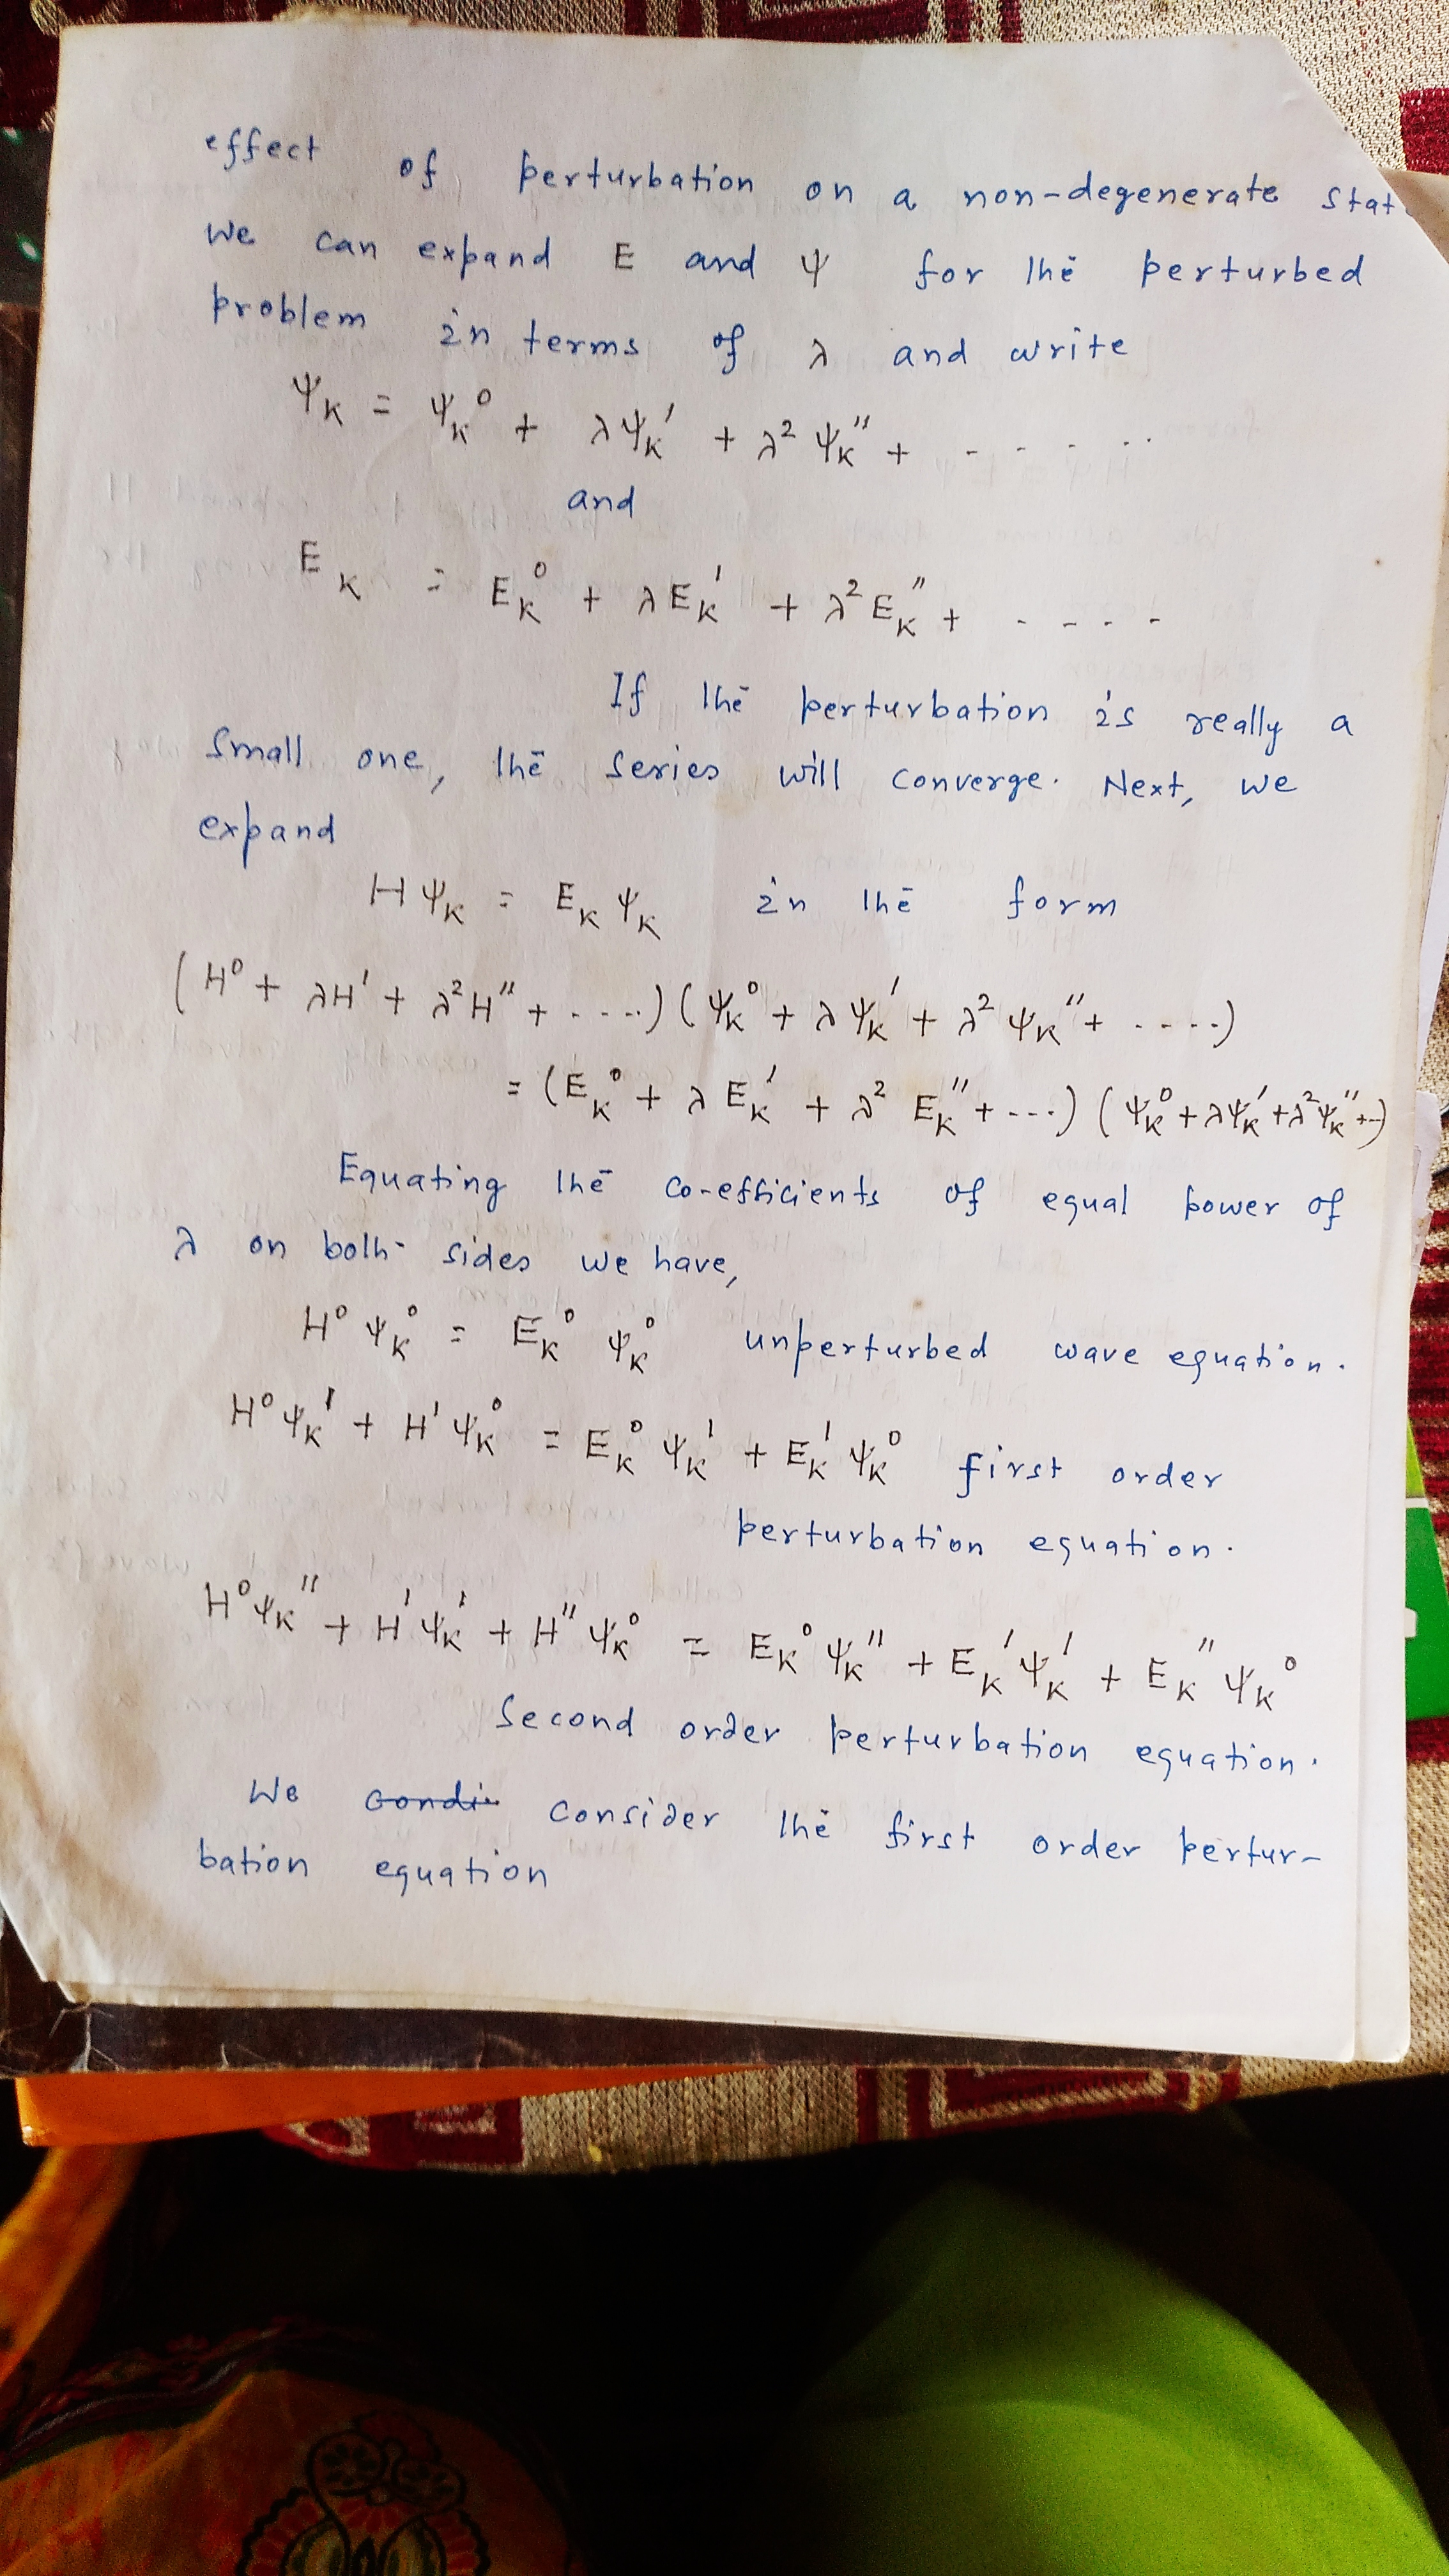 effect of perturbation on a non-degenerate stat
we can expand E and ψ for the perturbed
problem in terms of λ and write
ψ_K = ψ_K⁰ + λψ_K′ + λ²ψ_K″ + - - - ..
and
E_K = E_K⁰ + λE_K′ + λ²E_K″ + - - - -
If the perturbation is really a
small one, the series will converge. Next, we
expand
Hψ_K = E_Kψ_K in the form
(H⁰ + λH′ + λ²H″ + ----) (ψ_K⁰ + λψ_K′ + λ²ψ_K″ + ----)
= (E_K⁰ + λE_K′ + λ²E_K″ + ---) (ψ_K⁰ + λψ_K′ + λ²ψ_K″ + --)
Equating the co-efficients of equal power of
λ on both sides we have,
H⁰ψ_K⁰ = E_K⁰ψ_K⁰ unperturbed wave equation.
H⁰ψ_K′ + H′ψ_K⁰ = E_K⁰ψ_K′ + E_K′ψ_K⁰ first order
perturbation equation.
H⁰ψ_K″ + H′ψ_K′ + H″ψ_K⁰ = E_K⁰ψ_K″ + E_K′ψ_K′ + E_K″ψ_K⁰
Second order perturbation equation.
We consider the first order pertur-
bation equation